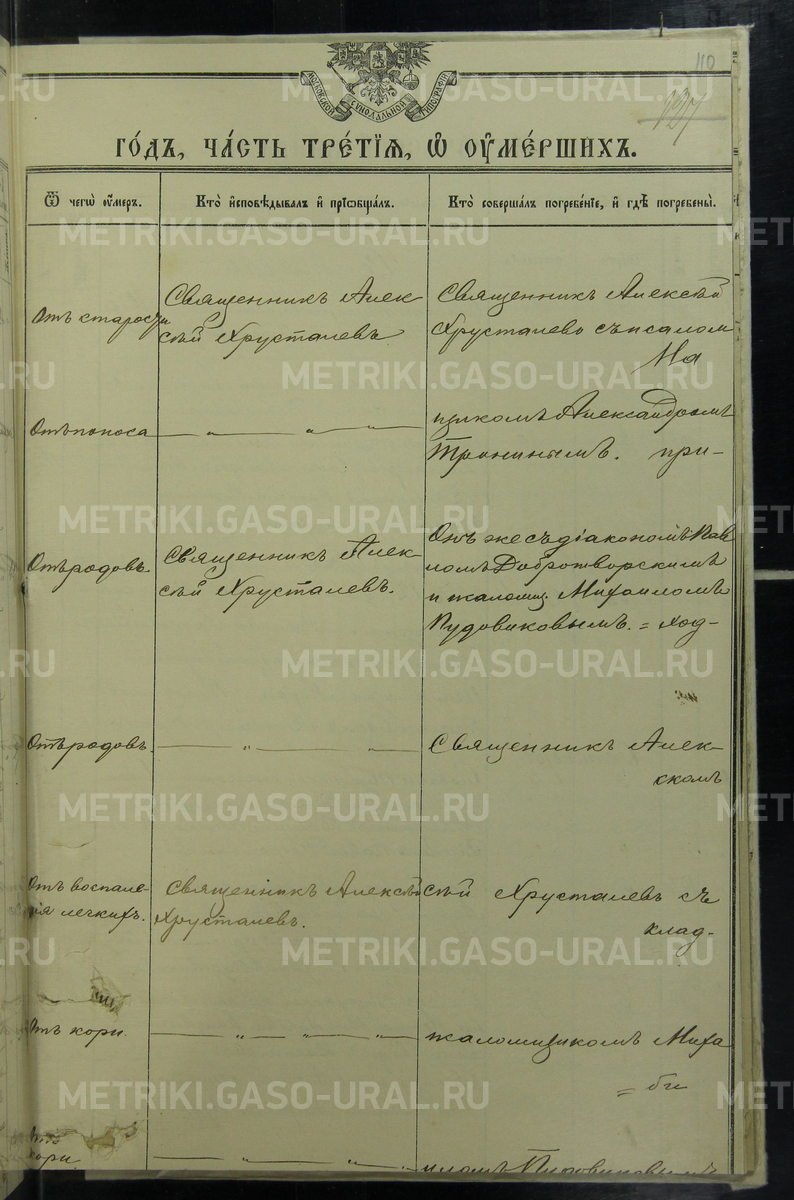 110
137
МОСКОВСКОЙ СѴНОДАЛЬНОЙ ТИПОГРАФІИ
ГО́ДЪ, ЧА́СТЬ ТРЕ́ТІЯ, Ѡ ОУМЕ́РШИХЪ.
Ѿ чегѡ̀ оу҆́меръ.
Кто̀ и҆сповѣ́дывалъ и҆ прїѡбща́лъ.
Кто̀ соверша́лъ погребе́нїе, и҆ гдѣ̀ погребены̀.
Отъ старости
Священникъ Алек-
сѣй Хрусталевъ
Священникъ Алексѣй
Хрусталевъ съ псалом
На
Отъ поноса
— „ — „ — „ —
щикомъ Александромъ
Трониннымъ. при-
Отъ родовъ.
Священникъ Алек-
сѣй Хрусталевъ.
Онъ же съ діакономъ Пав
ломъ Добротворскимъ
и псаломщ. Михаиломъ
Пудовиковымъ. = ход-
Отъ родовъ.
— „ — „ —
Священникъ Алек-
скомъ
Отъ воспале-
нія легкихъ.
Священникъ Алексѣй
Хрусталевъ.
сѣй Хрусталевъ съ
клад-
Отъ кори.
— „ — „ — „ —
псаломщикомъ Миха
= би
Отъ
кори
— „ — „ —
иломъ Пудовиковымъ
METRIKI.GASO-URAL.RU